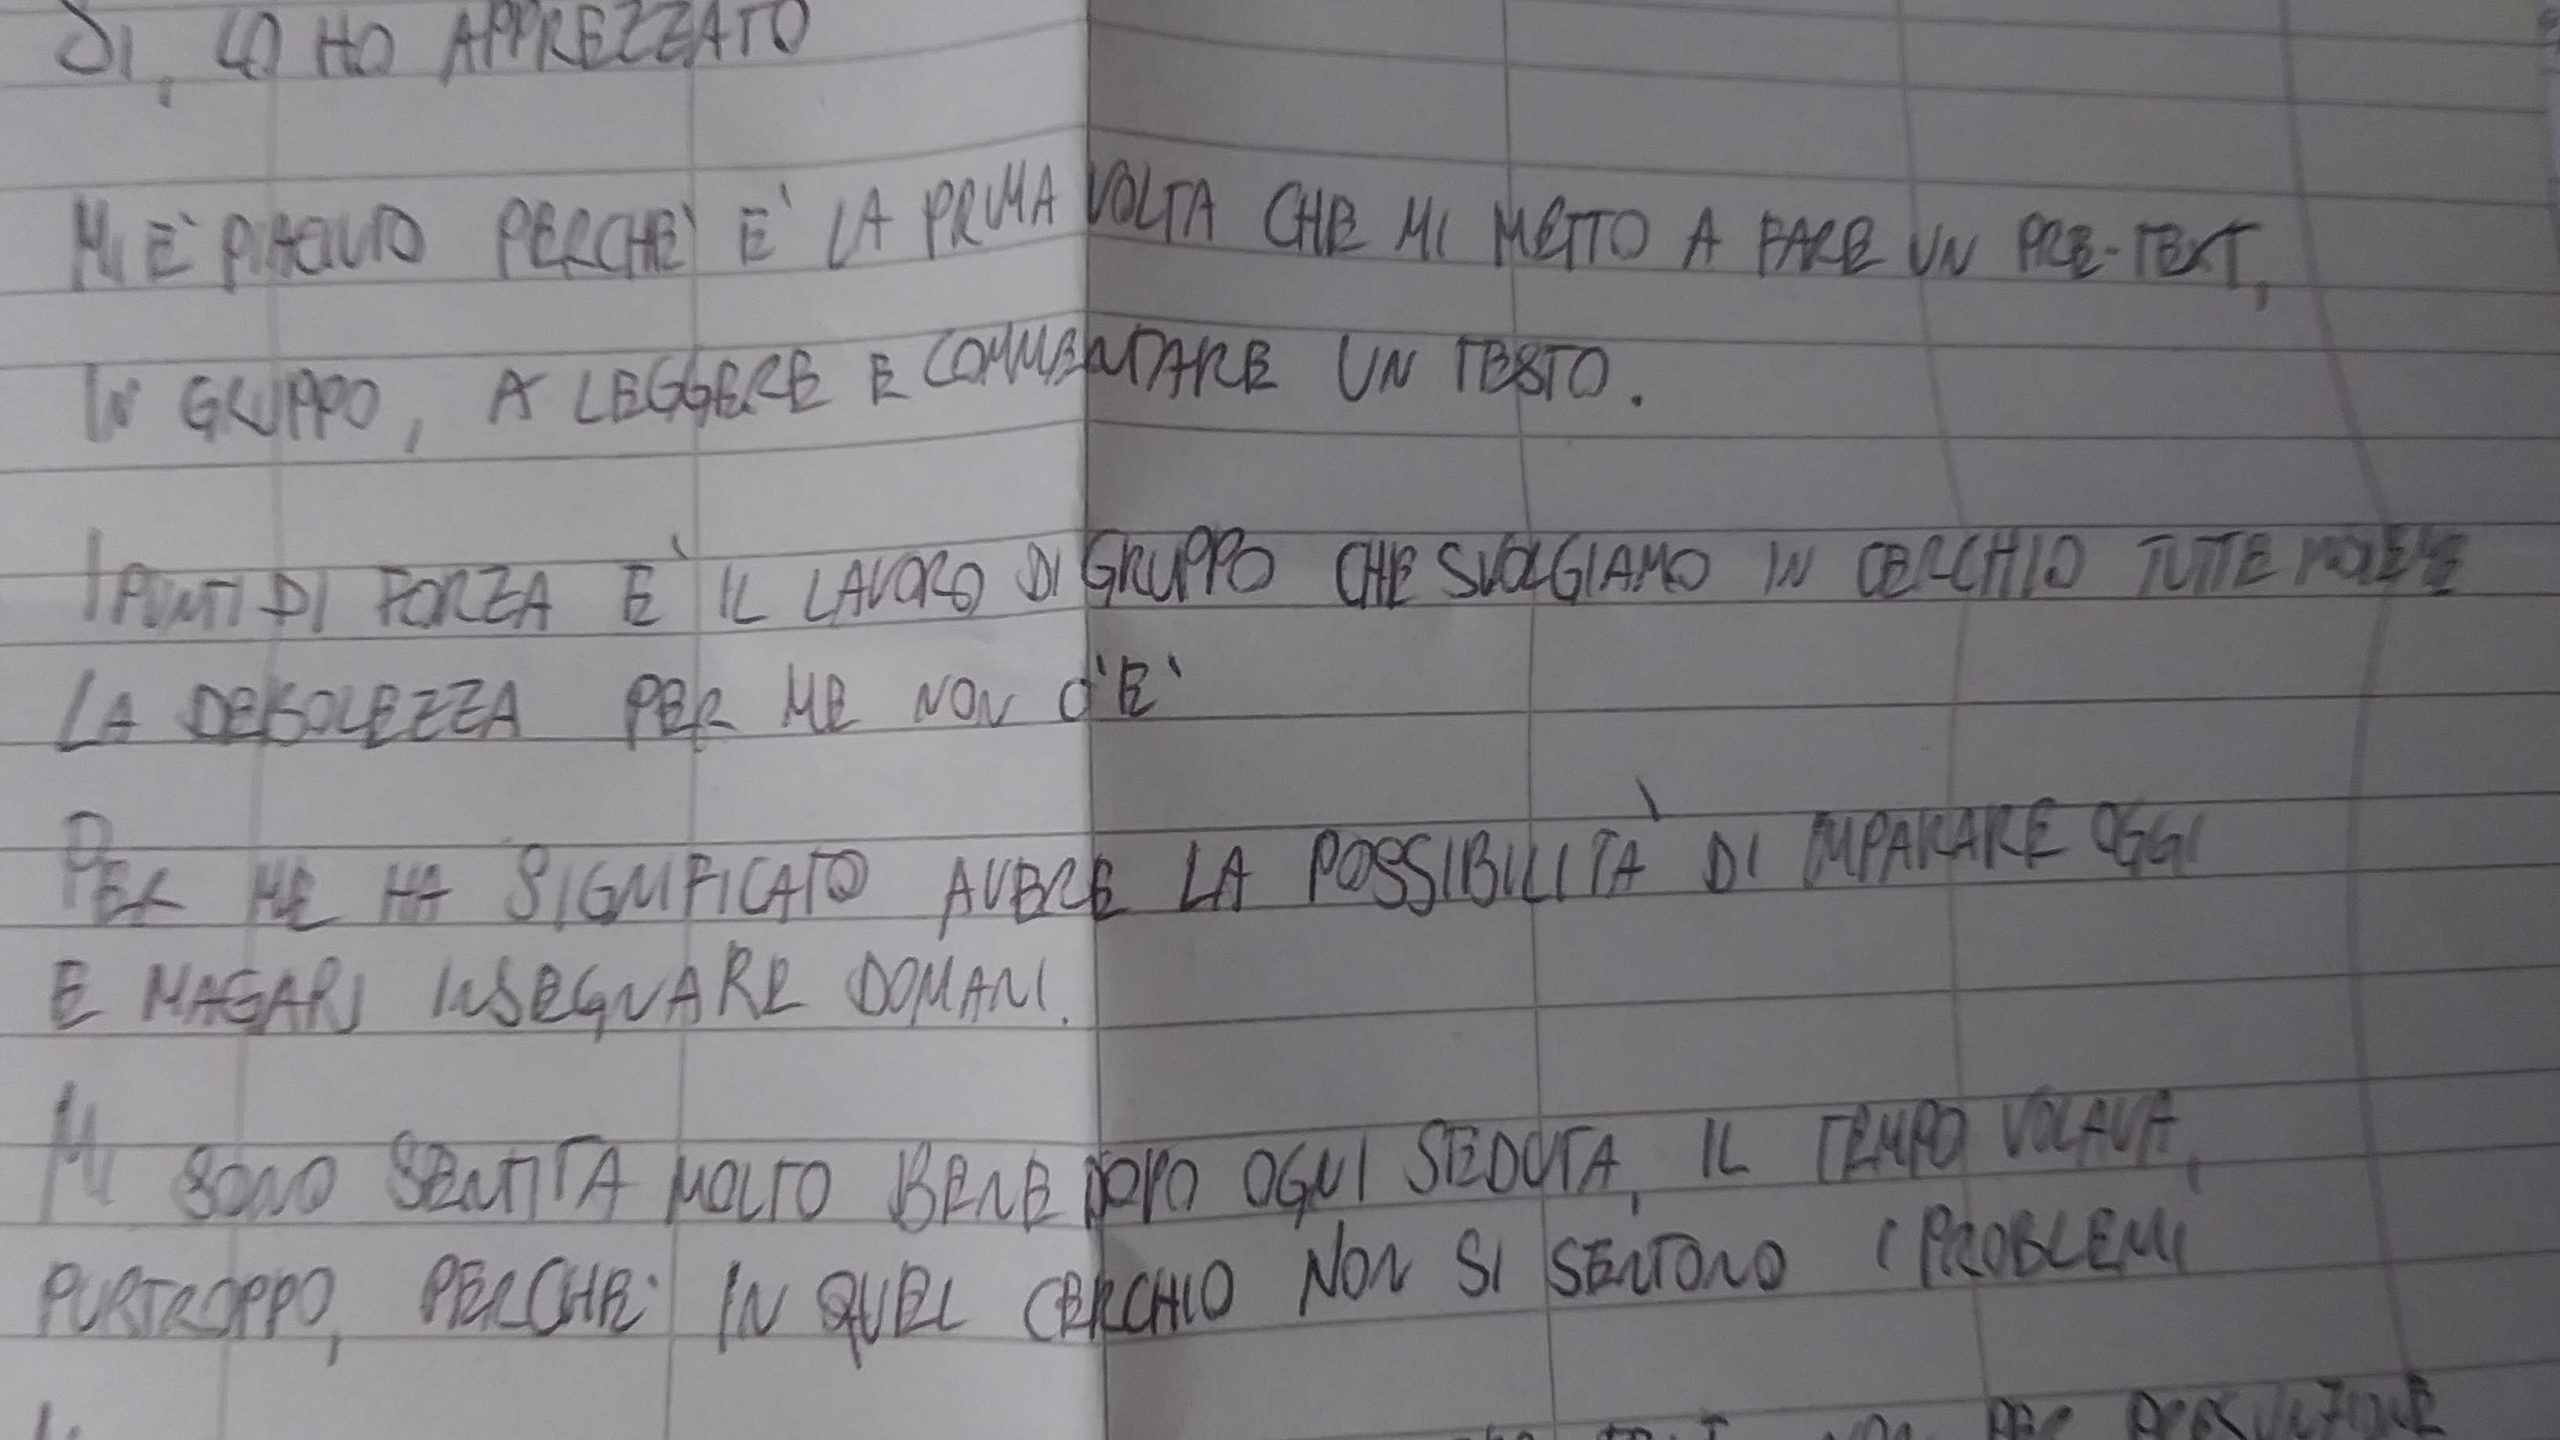 SI, LO HO APPREZZATO
MI È PIACIUTO PERCHÈ È LA PRIMA VOLTA CHE MI METTO A FARE UN PRE-TEXT,
IN GRUPPO, A LEGGERE E COMMENTARE UN TESTO.
I PUNTI DI FORZA È IL LAVORO DI GRUPPO CHE SVOLGIAMO IN CERCHIO TUTTE
LA DEBOLEZZA PER ME NON C'È
PER ME HA SIGNIFICATO AVERE LA POSSIBILITÀ DI IMPARARE OGGI
E MAGARI INSEGNARE DOMANI.
MI SONO SENTITA MOLTO BENE DOPO OGNI SEDUTA, IL TEMPO VOLAVA,
PURTROPPO, PERCHÈ IN QUEL CERCHIO NON SI SENTONO I PROBLEMI